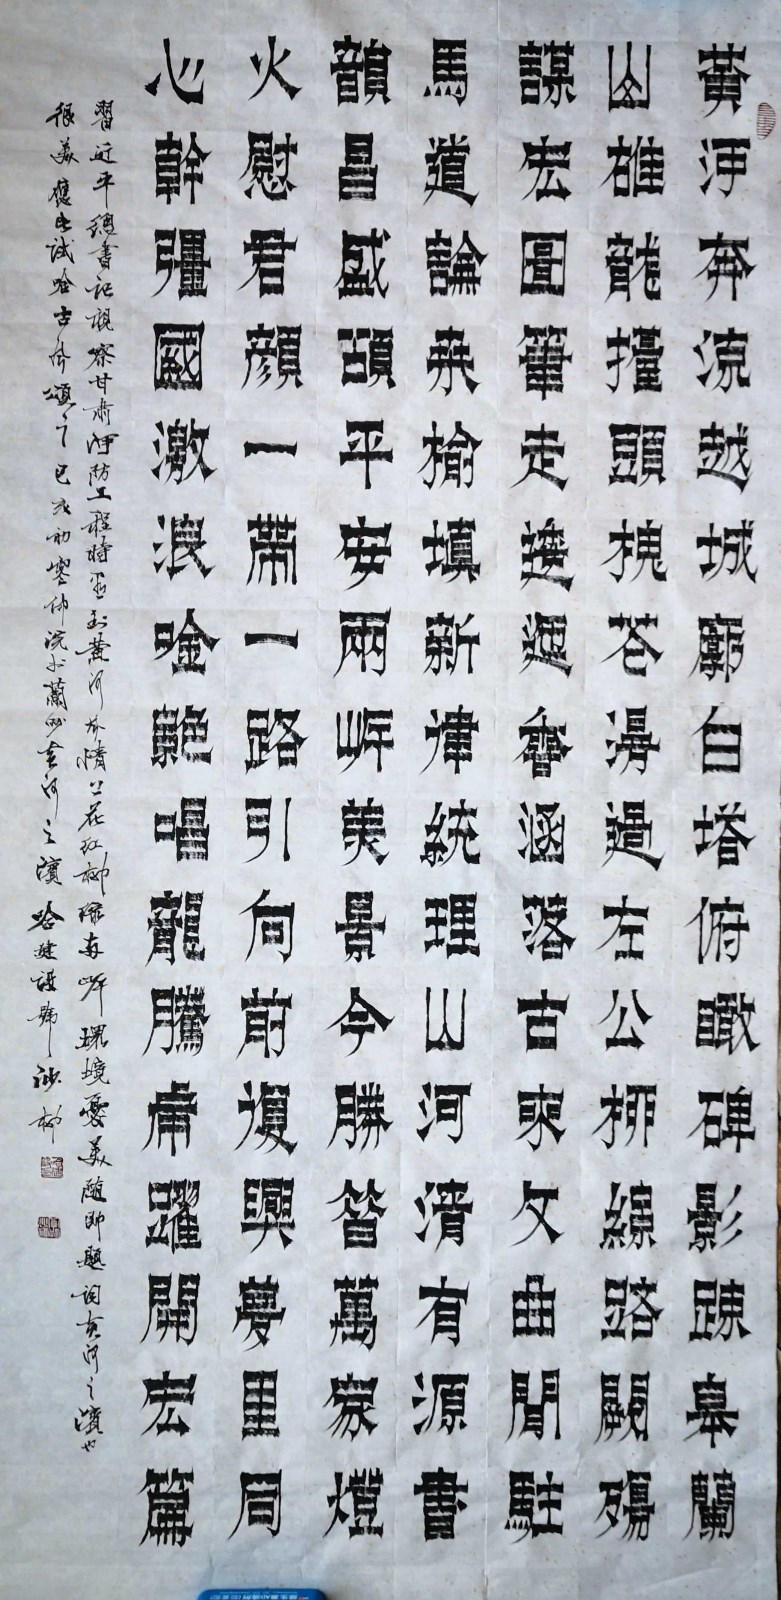 黃河奔流越城廓白塔俯瞰碑影疎皋蘭
山雄龍擡頭槐苍漫過左公柳綠路闊殤
謀宏圖筆走逶迤香涵落古來文曲聞駐
馬道論乘榆填新律統理山河清有源書
韻昌盛頤平安兩岸美景今勝昔萬家燈
火慰君顔一帶一路引向前復興夢里同
心幹彊國激浪唫艶唱龍騰虎躍開宏篇
習近平總書記視察甘肅河防工程時至黃河花红柳绿两岸環境憂美隨即題词黄河之濱也
很美應试哈古風頌之己亥初寒仲浣於蘭州黄河之濱哈建設號